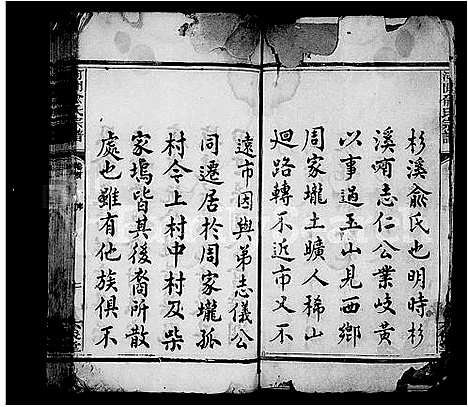 杉溪俞氏也明時杉
溪喃志仁公業岐黃
以事過玉山見西鄉
周家壠土曠人稀山
廻路轉不近市又不
遠市因與弟志儀公
同遷居於周家壠孤
村今上村中村及柴
家塢皆其後裔所散
處也雖有他族俱不